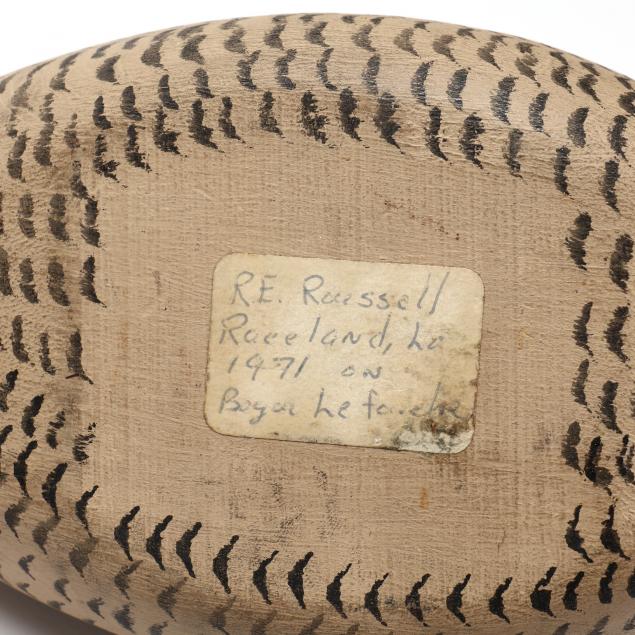 R.E. Russell
Raceland, La
1971 on
Bayou Lafourche